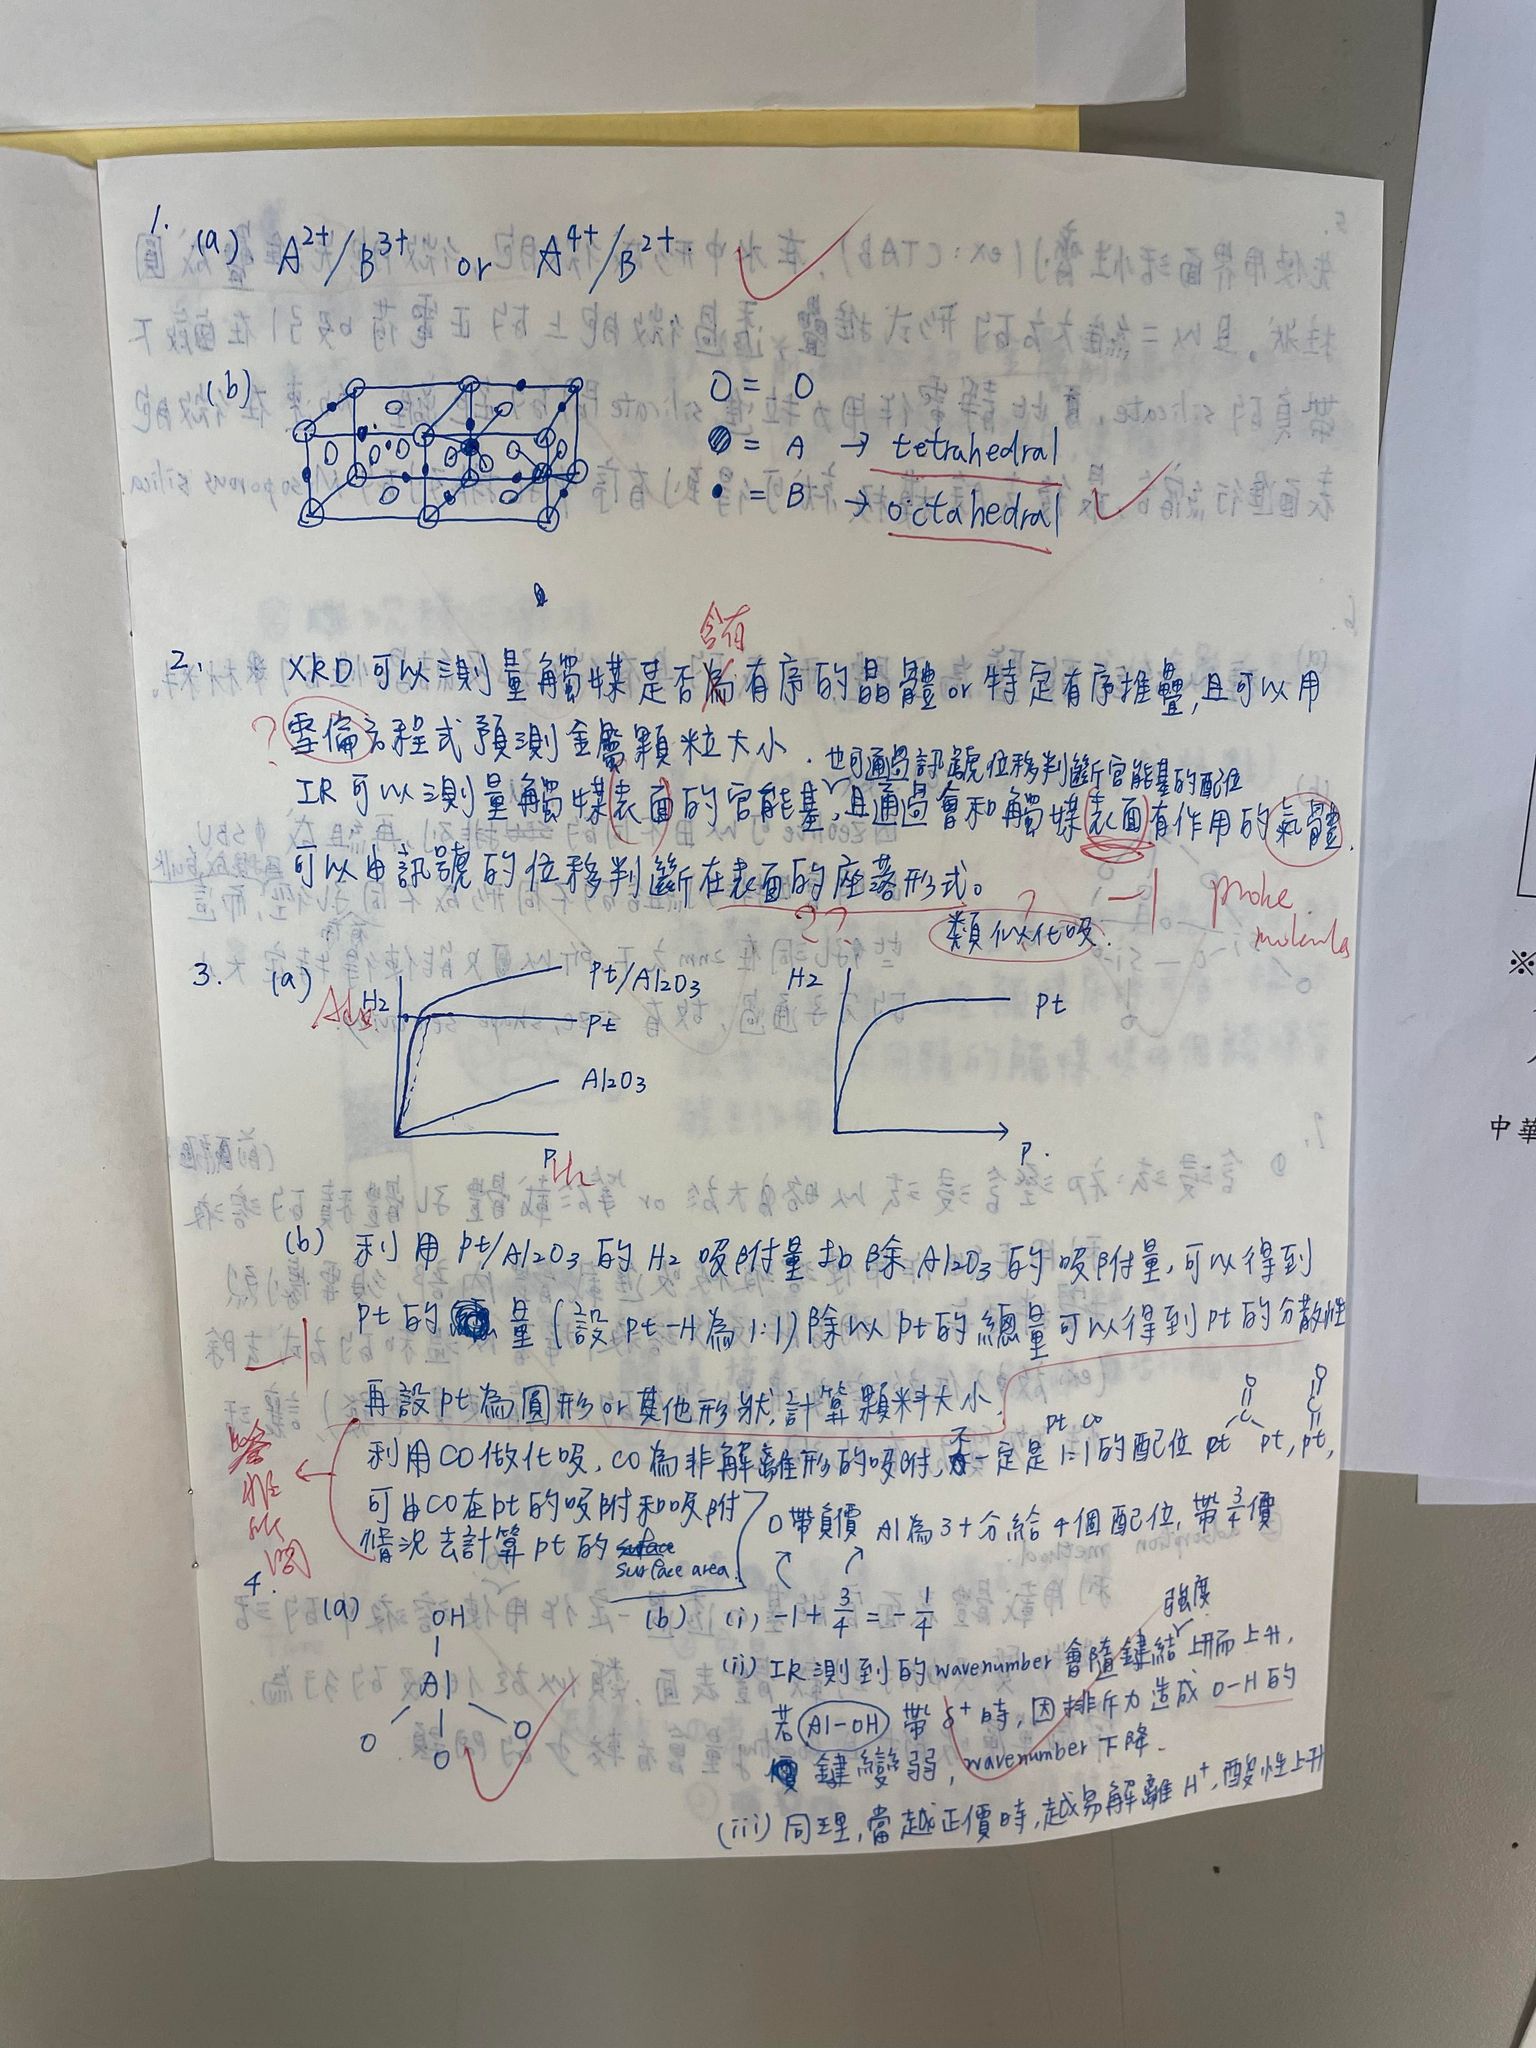 1.
(a). A2+/B3+ or A4+/B2+.
(b)
O = O
= A → tetrahedral
• = B → octahedral
含有
2. XRD 可以測量觸媒是否為有序的晶體 or 特定有序堆疊, 且可以用
? 雪倫方程式預測金屬顆粒大小.
也可通過訊號位移判斷官能基的配位
IR 可以測量觸媒表面的官能基, 且通過會和觸媒表面有作用的氣體.
可以由訊號的位移判斷在表面的座落形式。
?? ? -1 probe
類似化吸.
3. (a)
H2 Pt/Al2O3
Pt
Al2O3
P
H2
Pt
P.
(b) 利用 Pt/Al2O3 的 H2 吸附量扣除 Al2O3 的吸附量, 可以得到
Pt 的量 (設 Pt-H 為 1:1) 除以 Pt 的總量可以得到 Pt 的分散性
-1
再設 Pt 為圓形 or 其他形狀, 計算顆粒大小.
Pt CO
利用 CO 做化吸, CO 為非解離形的吸附, 不一定是 1:1 的配位
O
C
Pt Pt, Pt,
可由 CO 在 Pt 的吸附和吸附
情況去計算 Pt 的
surface area.
答非所問
O 帶負價 Al 為 3+ 分給 4 個配位, 帶 3/4 價
4.
(a) OH
Al
O O O
(b) (i) -1 + 3/4 = -1/4
強度
(ii) IR 測到的 wavenumber 會隨鍵結上升而上升,
若 Al-OH 帶 δ+ 時, 因排斥力造成 O-H 的
鍵變弱, wavenumber 下降.
(iii) 同理, 當越正價時, 越易解離 H+, 酸性上升
※
中華